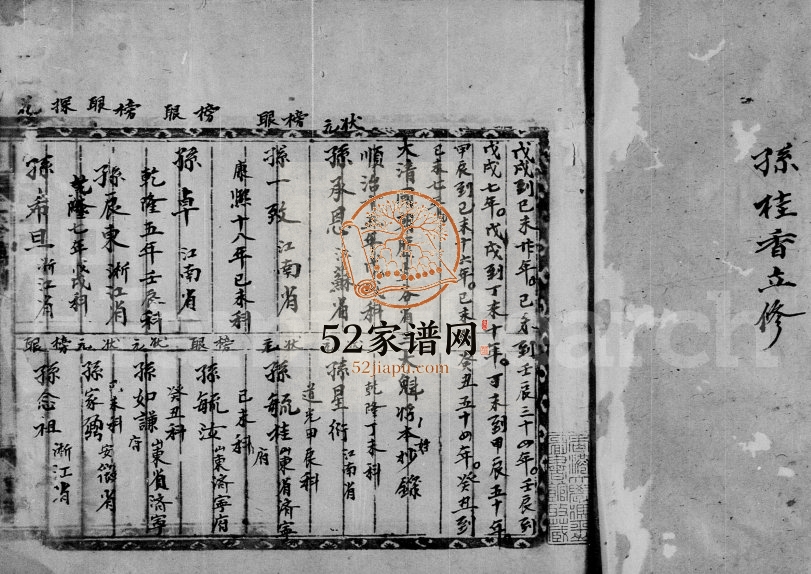 孫桂香立修
戊戌到己未廿年。己未到壬辰三十四年。壬辰到
戊戌七年。戊戌到丁未十年。丁未到甲辰五十年。
甲辰到己未十六年。己未癸丑五十四年。癸丑到
己未七
大清國 各省 大魁 本抄錄
順治 年 科
狀元
孫承恩 蘇省
榜眼
孫一致 江南省
康熙十八年己未科
榜眼
孫卓 江南省
乾隆五年壬辰科
榜眼
孫辰東 浙江省
乾隆七年戊戌科
探花
孫希旦 浙江省
乾隆丁未科
孫星衍 江南省
道光甲辰科
狀元
孫毓桂 山東省濟寧府
己未科
榜眼
孫毓汶 山東濟寧府
癸丑科
狀元
孫如謙 山東省濟寧府
未科
狀元
孫家鼐 安徽省
榜眼
孫念祖 浙江省
52家谱网
52jiapu.com